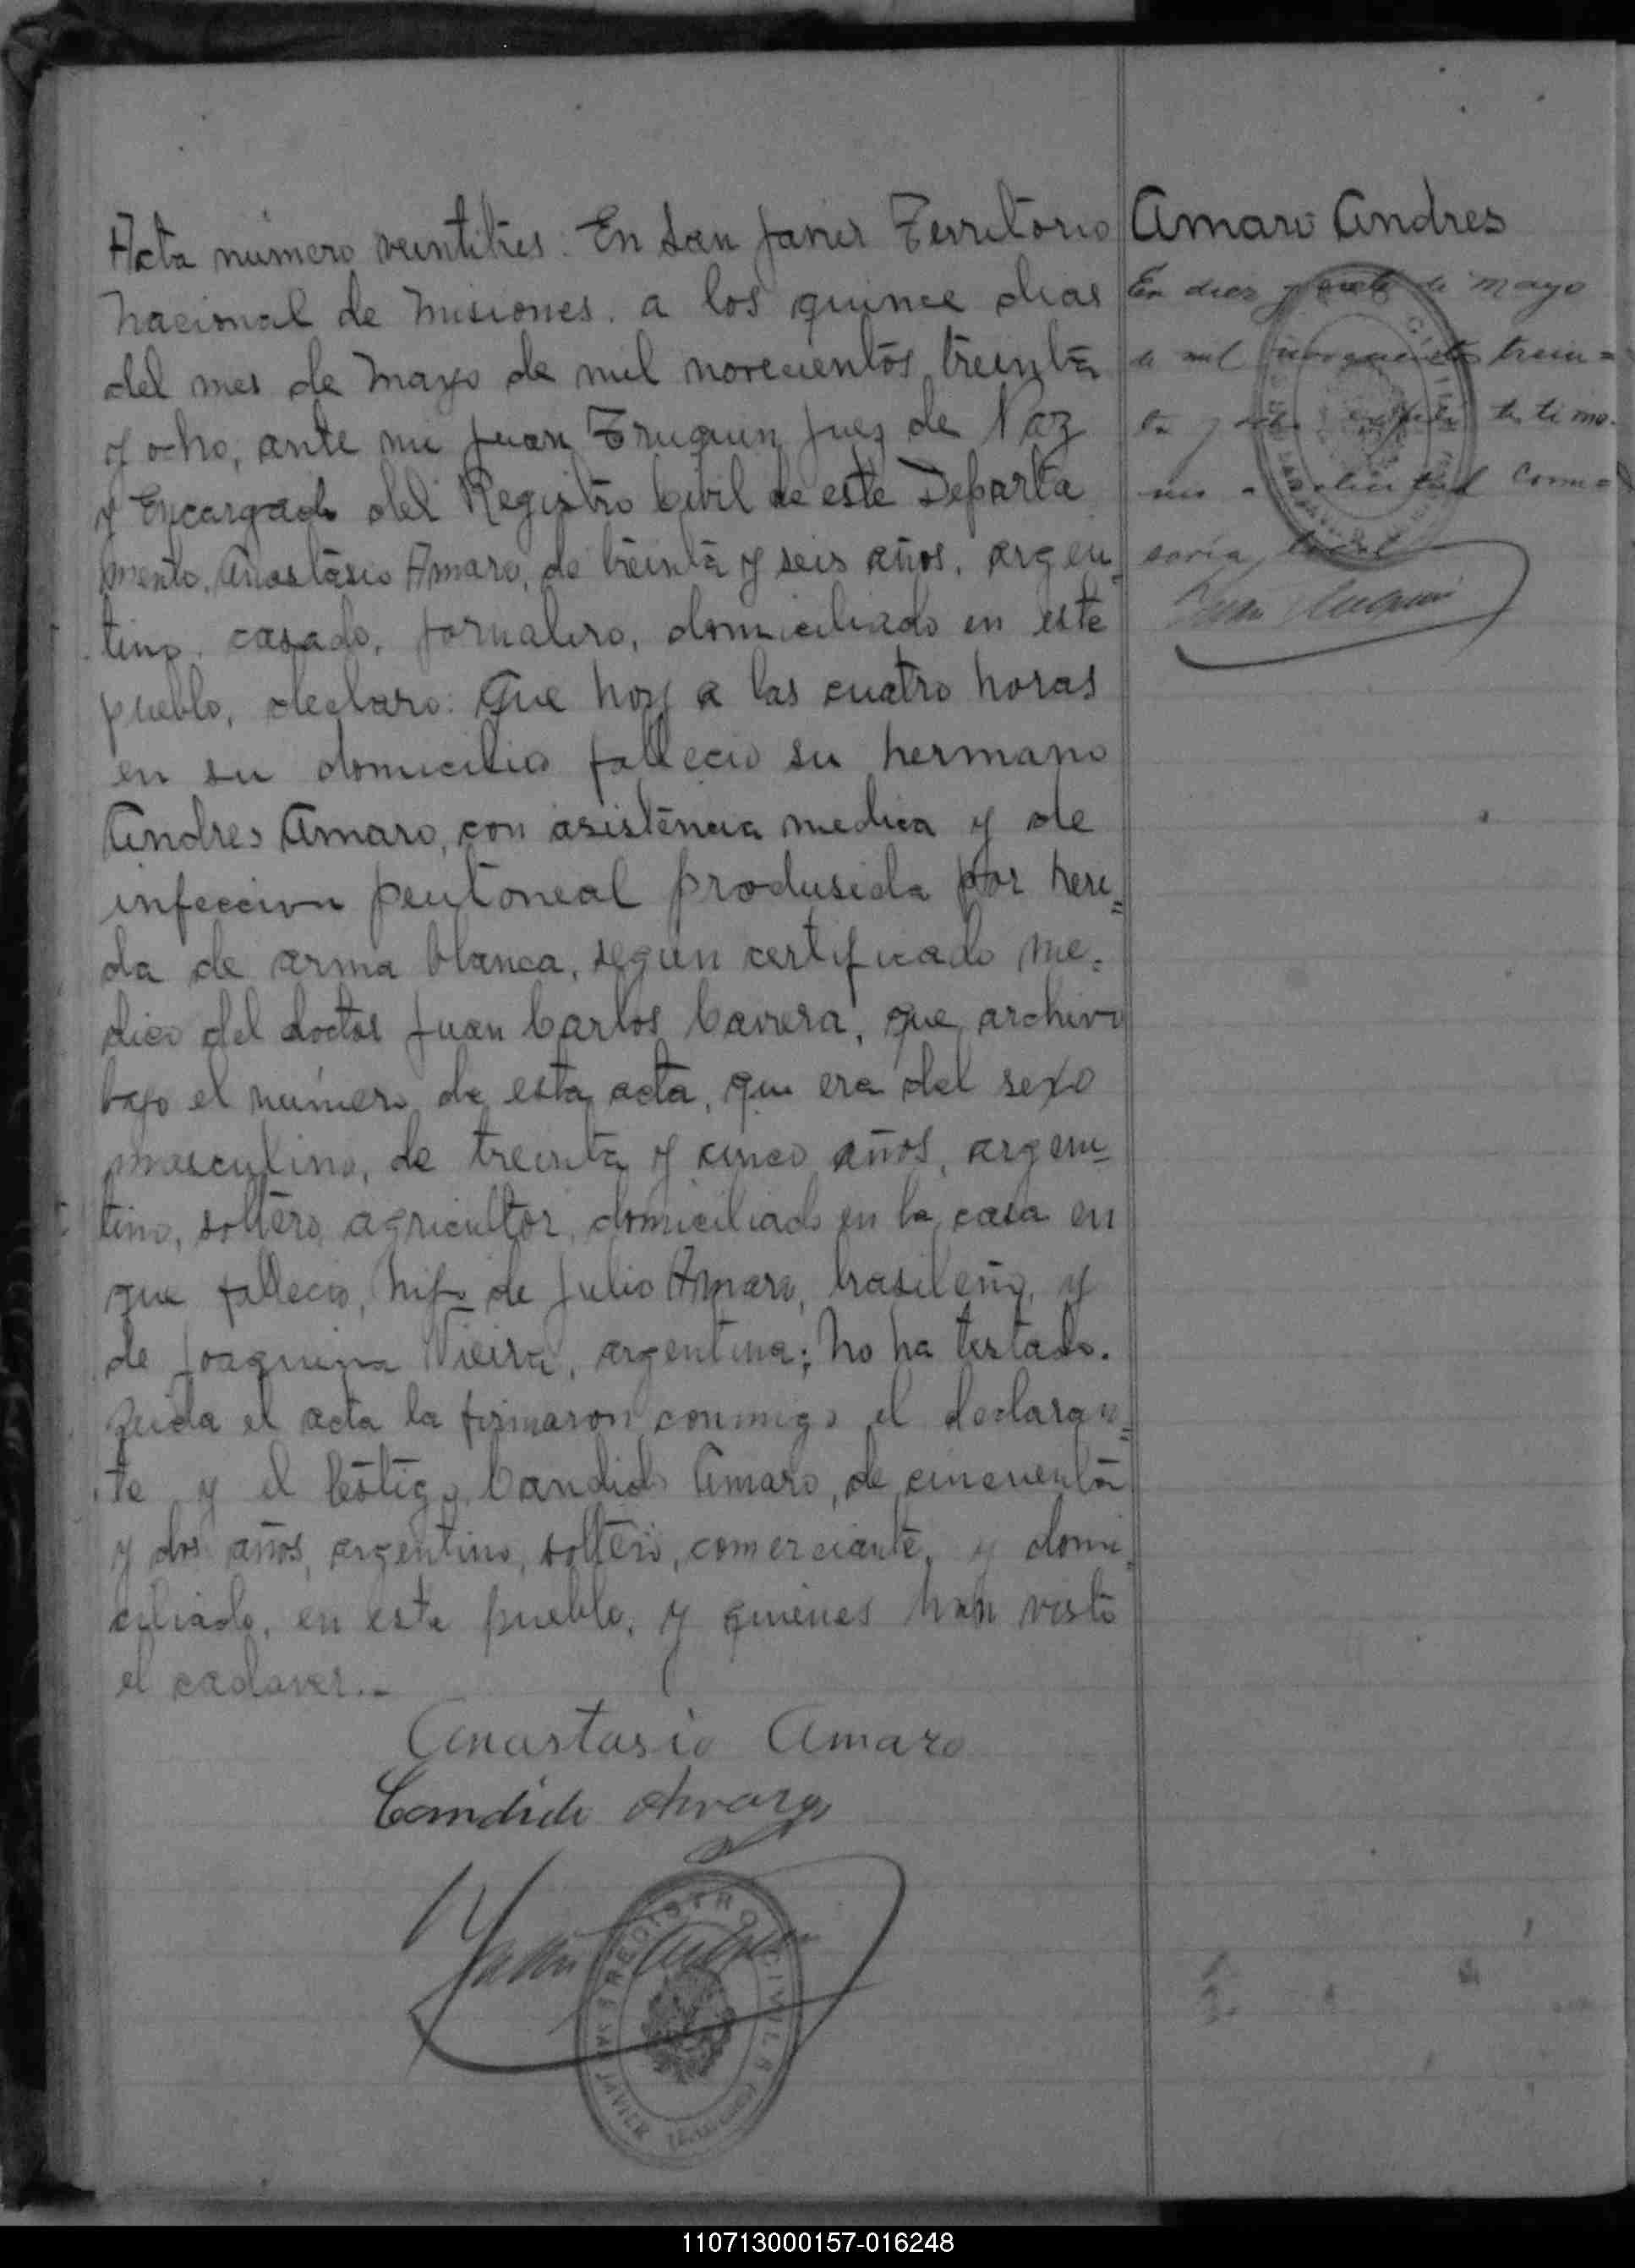 Acta número veintitres. En San Javier Territorio
Nacional de Misiones. a los quince dias
del mes de Mayo de mil novecientos treinta
y ocho, ante mi Juan Truquin Juez de Paz
y Encargado del Registro Civil de este Departa
mento, Anastasio Amaro, de treinta y seis años, argen
tino, casado, jornalero, domiciliado en este
pueblo, declaro: Que hoy a las cuatro horas
en su domicilio fallecio su hermano
Andres Amaro, con asistencia medica y de
infeccion peritoneal produsida por heri=
da de arma blanca, según certificado me=
dico del doctor Juan Carlos, que archivo
bajo el número de esta acta, que era del sexo
masculino, de treinta y cinco años, argen=
tino, soltero, agricultor, domiciliado en la casa en
que fallecio, hijo de Julio Amaro, brasileño, y
de Joaquina Vieira, argentina; No ha testado.
Leida el acta la firmaron conmigo el declaran=
te y el testigo, Candido Amaro, de cincuenta
y dos años, argentino, soltero, comerciante, y domi
ciliado, en este pueblo, y quienes han visto
el cadaver..-
Anastasio Amaro
Candido
Juan Truquin
REGISTRO CIVIL
SAN JAVIER
Amaro Andres
En diez y siete de Mayo
de mil novecientos trein=
ta y ocho expedi testimo.
nio a solicitud Comi=
saria local
Juan Truquin
110713000157-016248